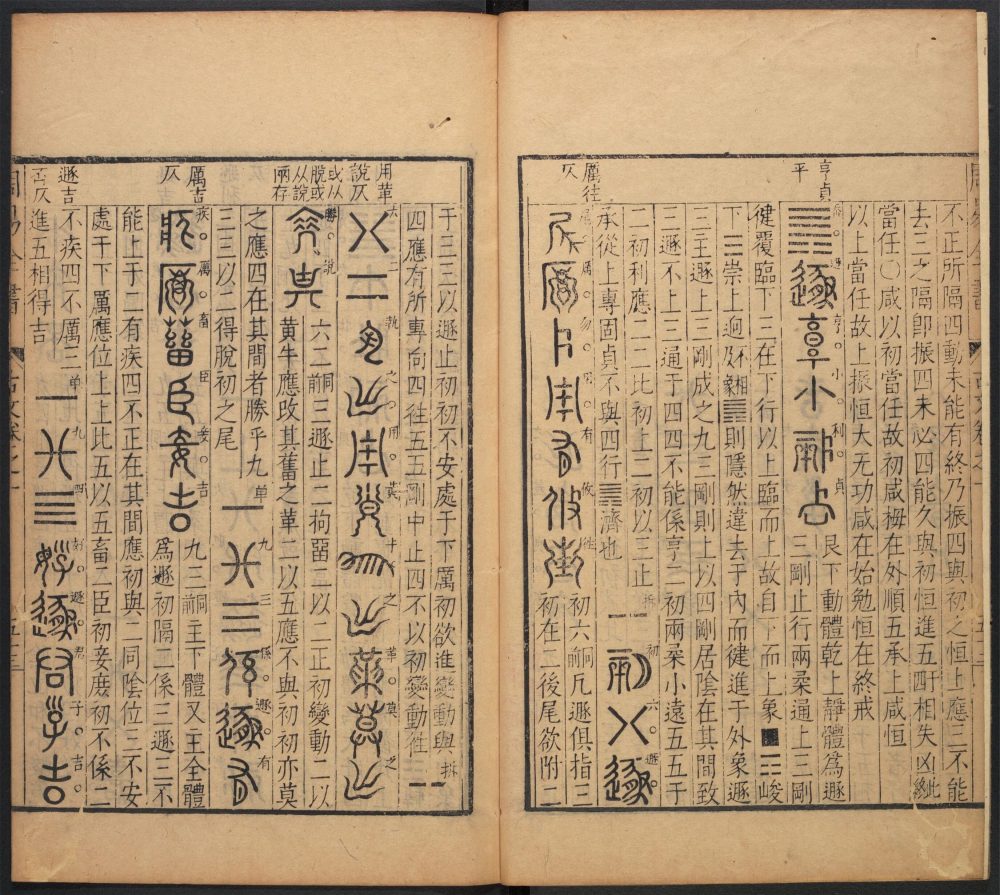 亨貞
平
厲往
仄
不正所隔四動未能有終乃振四與初之恒上應三不能
去三之隔卽振四未必四能久與初恒進五四相失凶
當任〇咸以初當任故初咸栂在外順五承上咸恒
以上當任故上振恒大无功咸在始勉恒在終戒
䷠遯亨小利貞
艮下動體乾上靜體為遯
三剛止行兩柔逼上三剛
健覆臨下三在下行以上臨而上故自下而上象■☶峻
下☰崇上逈及不相䷠則隱然違去于內而健進于外象遯
三主遯上三剛成之九三剛則上以四剛居陰在其間致
三遯不上三通于四四不能係亨二初兩柔小遠五五于
二初利應二二比初上三初以三止
承從上專固貞不與四行䷾濟也
初六遯
尾厲勿用有攸往
初六前同凡遯俱指三
初在二後尾欲附二
用革
說仄
或以
脫或
从說
兩存
厲吉
仄
遯吉
否仄
于三三以遯止初初不安處于下厲初欲進變動與
四應有所專向四往五五剛中止四不以初變動往
六二執之用黃牛之革莫之
勝說
六二前同三遯止二拘畱二以二正初變動二以
黃牛應改其舊之革二以五應不與初初亦莫
之應四在其間者勝乎九
三三以二得脫初之尾
九三係遯有
疾厲畜臣妾吉
九三前同主下體又主全體
為遯初隔二係三遯三不
能上于二有疾四不正在其間應初與二同陰位三不安
處于下厲應位上上比五以五畜二臣初妾麼初不係二
不疾四不厲三
進五相得吉
九四好遯君子吉